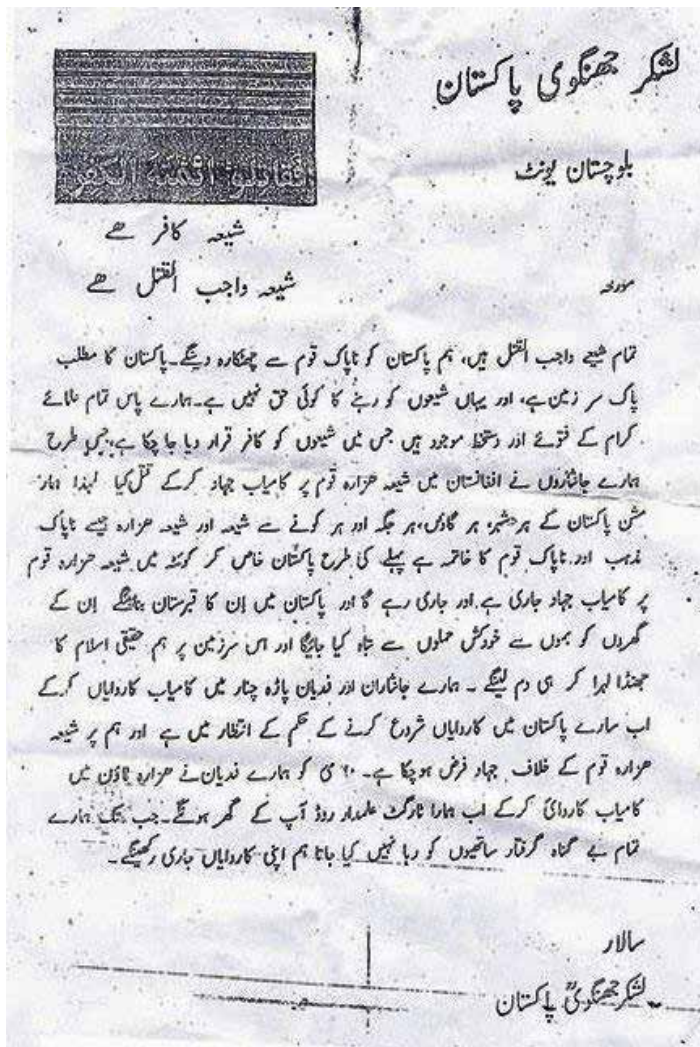 لشکر جھنگوی پاکستان
بلوچستان یونٹ
شیعہ کافر ھے
شیعہ واجب القتل ھے
مورخہ
تمام شیعے واجب القتل ہیں، ہم پاکستان کو ناپاک قوم سے چھٹکارہ دینگے۔ پاکستان کا مطلب
پاک سر زمین ہے، اور یہاں شیعوں کو رہنے کا کوئی حق نہیں ہے۔ ہمارے پاس تمام علمائے
کرام کے فتوئے اور دستخط موجود ہیں جس میں شیعوں کو کافر قرار دیا جا چکا ہے، جس طرح
ہمارے جانثاروں نے افغانستان میں شیعہ ھزارہ قوم پر کامیاب جہاد کرکے قتل کیا لہذا ہمار
مشن پاکستان کے ہر شہر، ہر گاؤں، ہر جگہ اور ہر کونے سے شیعہ اور شیعہ ھزارہ جیسے ناپاک
مذہب اور ناپاک قوم کا خاتمہ ہے پہلے کی طرح پاکستان خاص کر کوئٹہ میں شیعہ ھزارہ قوم
پر کامیاب جہاد جاری ہے اور جاری رہے گا اور پاکستان میں اِن کا قبرستان بنائینگے اِن کے
گھروں کو بموں سے خودکش حملوں سے تباہ کیا جائیگا اور اس سرزمین پر ہم حقیقی اسلام کا
جھنڈا لہرا کر ہی دم لینگے ۔ ہمارے جانثاران اور فدیان پاڑہ چنار میں کامیاب کاروایاں کرکے
اب سارے پاکستان میں کاروایاں شروع کرنے کے حکم کے انتظار میں ہے اور ہم پر شیعہ
ھزارہ قوم کے خلاف جہاد فرض ہوچکا ہے۔ مئی کو ہمارے فدیان نے ھزارہ ٹاؤن میں
کامیاب کاروائ کرکے اب ہمارا ٹارگٹ علمدار روڈ آپ کے گھر ہونگے۔ جب تک ہمارے
تمام بے گناہ گرفتار ساتھیوں کو رہا نہیں کیا جاتا ہم اپنی کاروایاں جاری رکھینگے۔
سالار
لشکر جھنگویؒ پاکستان